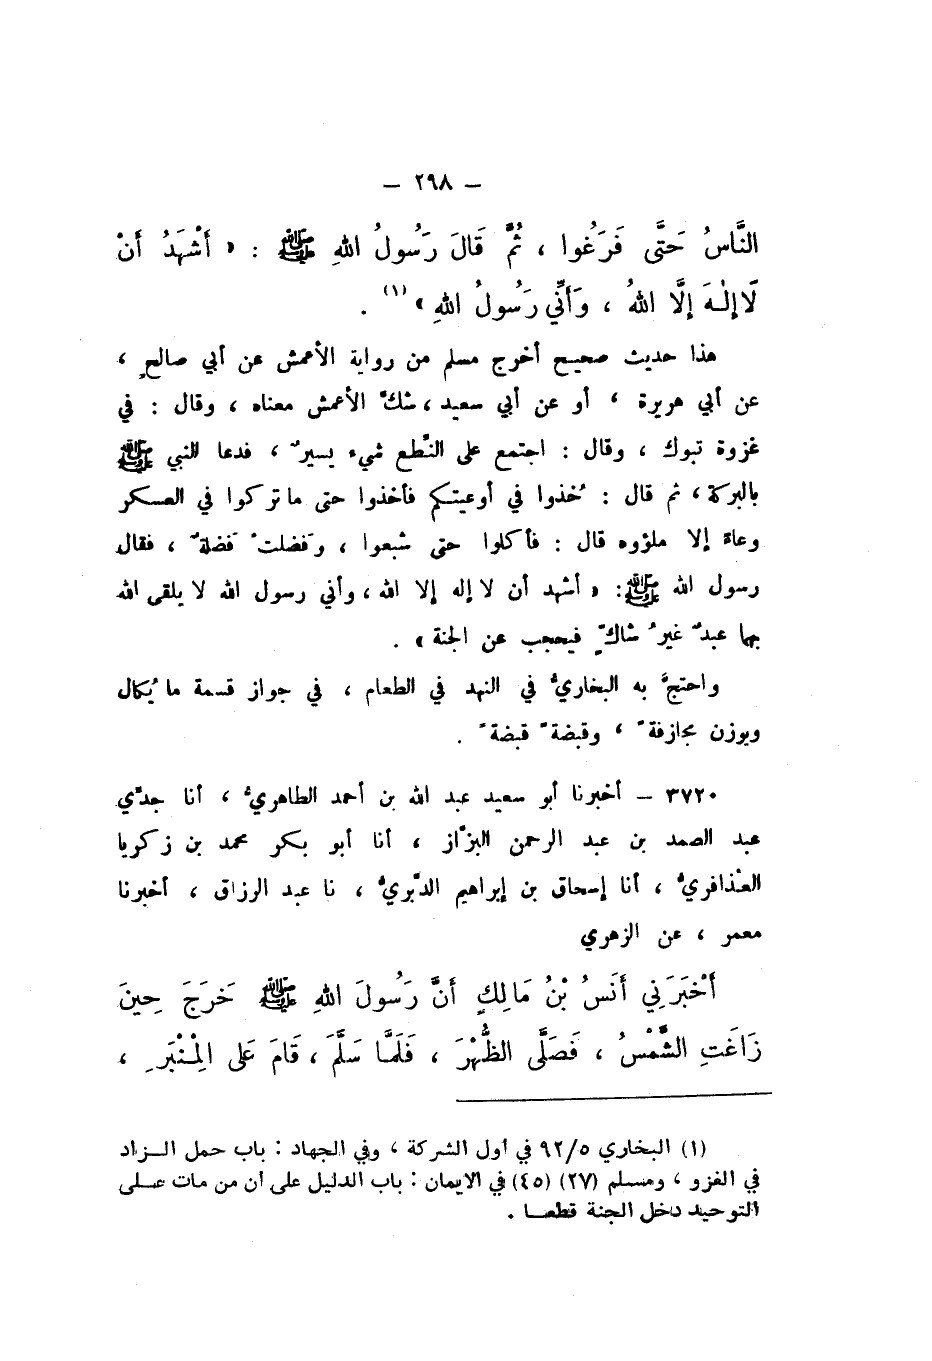 – ٢٩٨ –
النَّاسُ حَتَّى فَرَغُوا ، ثُمَّ قَالَ رَسُولُ اللهِ ﷺ : « أَشْهَدُ أَنْ
لَا إِلٰهَ إِلَّا اللهُ ، وَأَنِّي رَسُولُ اللهِ » (١) .
هذا حديث صحيح أخرج مسلم من رواية الأعمش عن أبي صالحٍ ،
عن أبي هريرة ، أو عن أبي سعيد ، شكَّ الأعمش معناه ، وقال : في
غزوة تبوك ، وقال : اجتمع على النِّطع شيء يسيرٌ ، فدعا النبي ﷺ
بالبركة ، ثم قال : خُذوا في أوعيتكم فأخذوا حتى ما تركوا في العسكر
وعاءً إلا ملؤوه قال : فأكلوا حتى شبعوا ، وفَضلتْ فَضلةٌ ، فقال
رسول الله ﷺ : « أشهد أن لا إله إلا الله ، وأني رسول الله لا يلقى الله
بهما عبدٌ غيرُ شاكٍّ فيحجب عن الجنة » .
واحتجَّ به البخاريُّ في النهد في الطعام ، في جواز قسمة ما يُكال
ويوزن مجازفةً ، وقبضةً قبضةً .
٣٧٢٠ – أخبرنا أبو سعيد عبد الله بن أحمد الطاهريُّ ، أنا جدِّي
عبد الصمد بن عبد الرحمن البزَّاز ، أنا أبو بكر محمد بن زكريا
العُذافريُّ ، أنا إسحاق بن إبراهيم الدَّبَريُّ ، نا عبد الرزاق ، أخبرنا
معمر ، عن الزهري
أَخْبَرَنِي أَنَسُ بْنُ مَالِكٍ أَنَّ رَسُولَ اللهِ ﷺ خَرَجَ حِينَ
زَاغَتِ الشَّمْسُ ، فَصَلَّى الظُّهْرَ ، فَلَمَّا سَلَّمَ ، قَامَ عَلى الْمِنْبَرِ ،
(١) البخاري ٩٢/٥ في أول الشركة ، وفي الجهاد : باب حمل الزاد
في الغزو ، ومسلم (٢٧) (٤٥) في الايمان : باب الدليل على أن من مات على
التوحيد دخل الجنة قطعا .